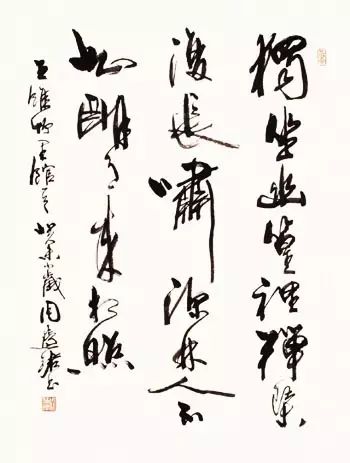 獨坐幽篁裡彈琴
復長嘯深林人不
知明月來相照
王維竹里館 歲周